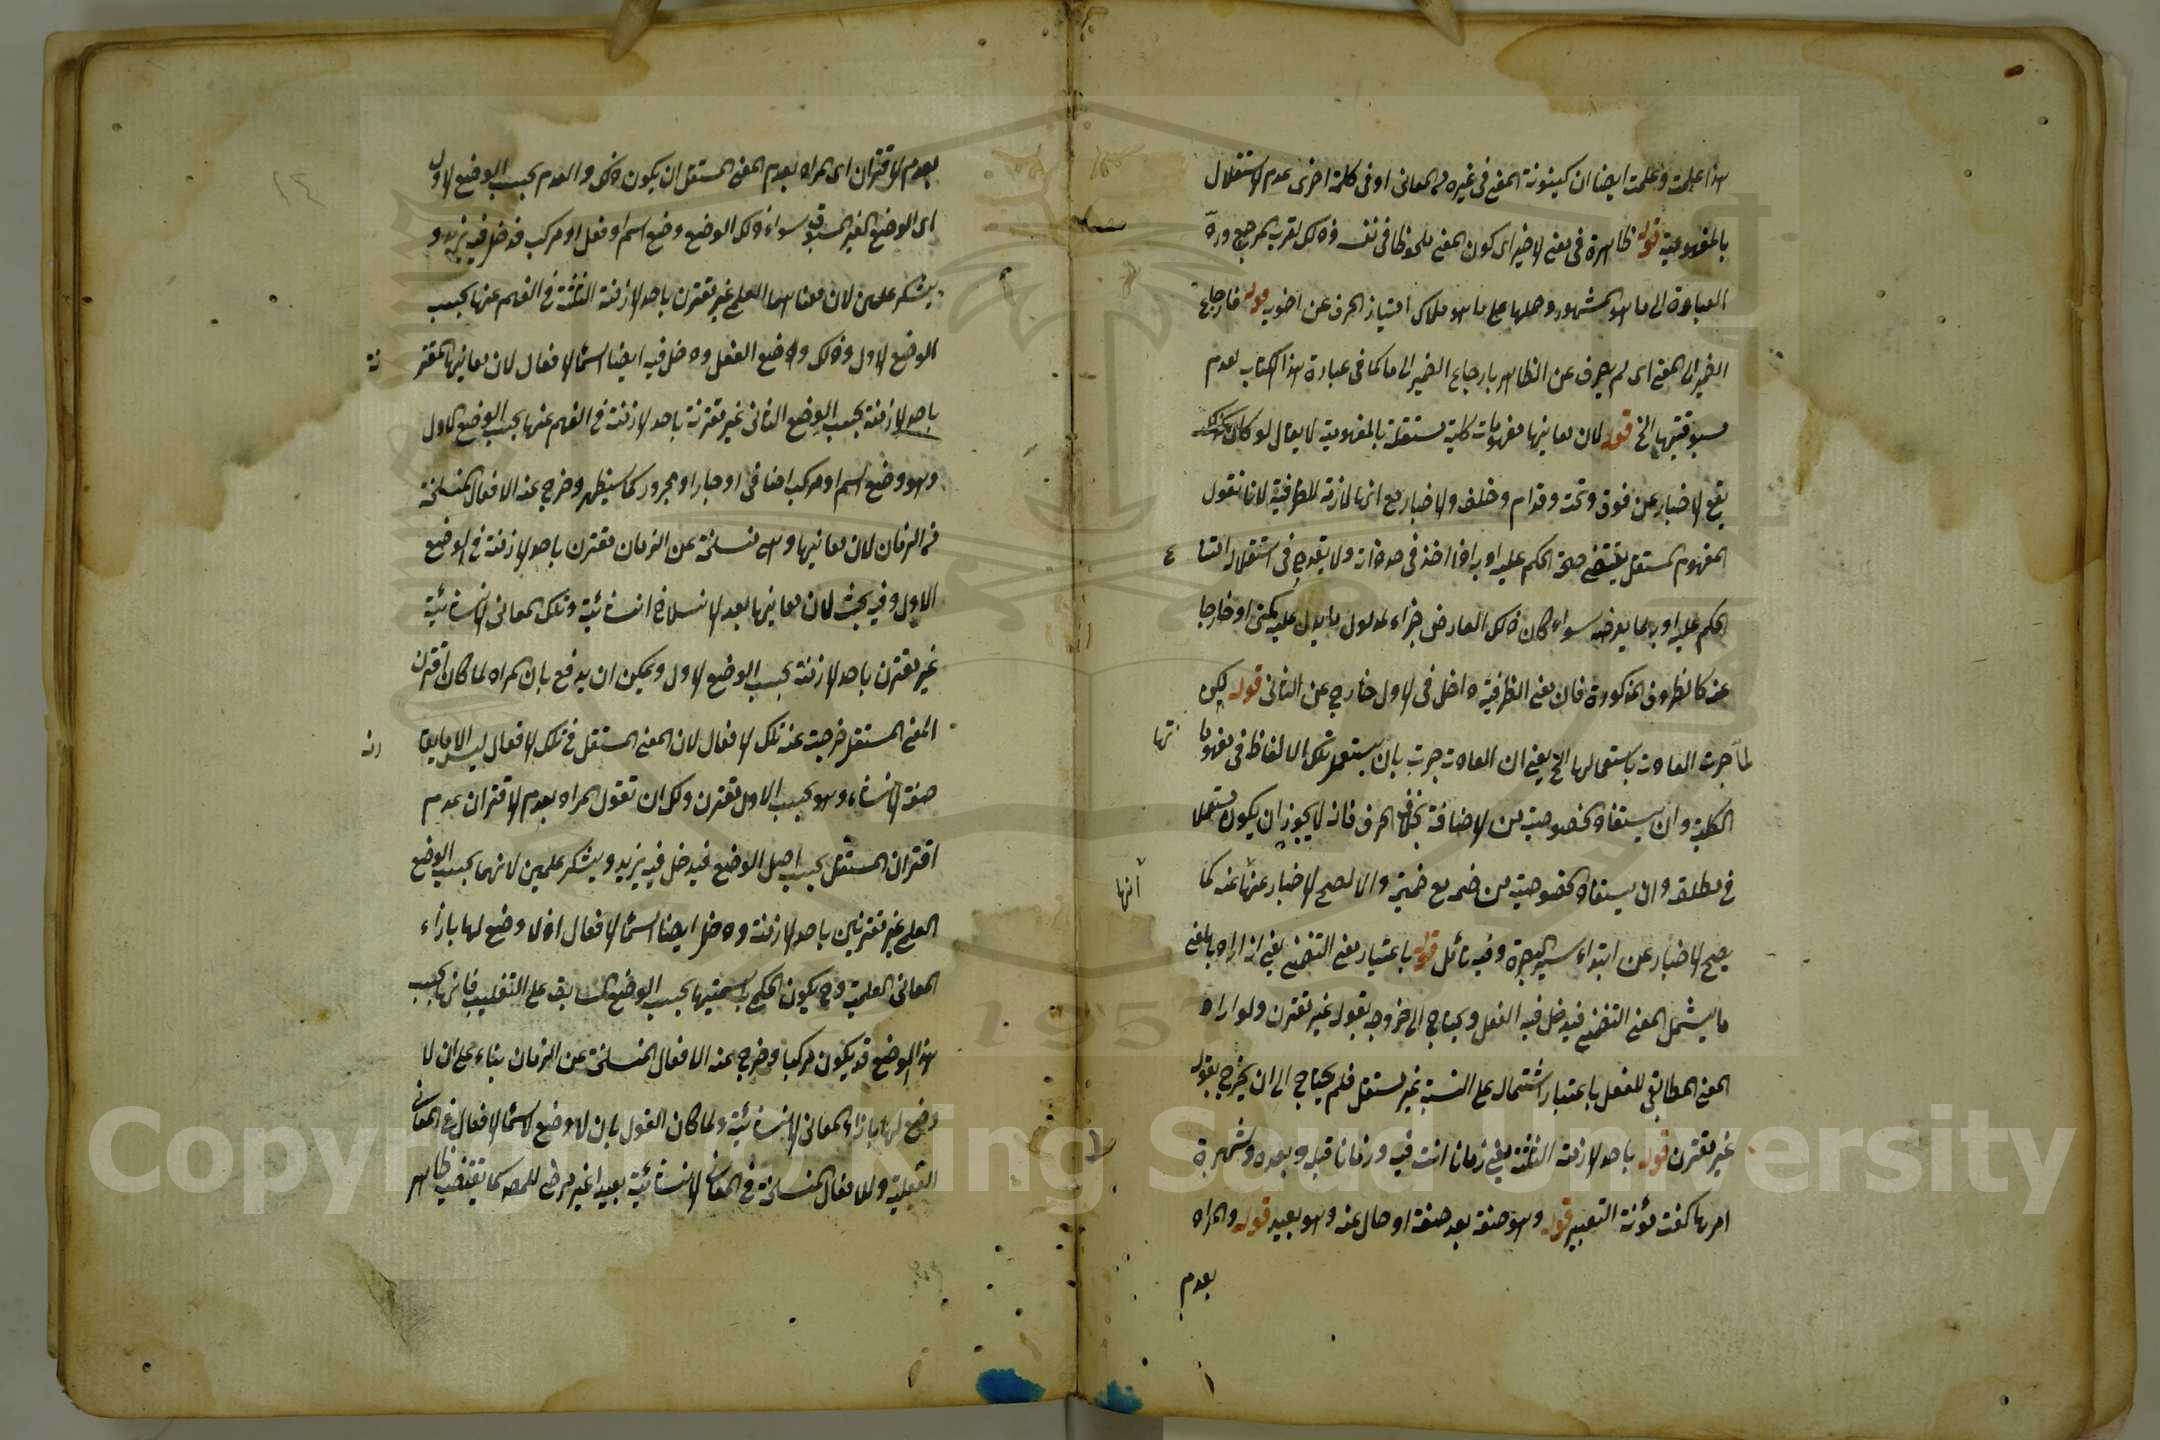 هذا علمت وعلمت ايضا ان كينونة المعنى في غيره من المعاني او في كلمة اخرى عدم الاستقلال
بالمفهومية قوله ظاهرة في معنى الاخير اى كون المعنى ملحوظا في نفسه وذلك لقرب المرجع ورد
العبارة الى ما هو المشهور وحملها على ما هو ملاك امتياز الحرف عن اخويه قوله فارجاع
الضمير الى المعنى اى لم يصرف عن الظاهر بارجاع الضمير الى ما كما في عبارة هذا الكتاب لعدم
مسبوقيتها الخ قوله لان معانيها مفهومات كلية مستقلة بالمفهومية لا يقال لو كان كذلك
يقع الاخبار عن فوق وتحت وقدام وخلف والاخبار مع انها لازمة الظرفية لانا نقول
المفهوم المستقل يقتضى صحة الحكم عليه او به اذا اخذ في حد ذاته ولا يقدح في استقلاله امتناع
الحكم عليه او به لما يعرضه سواء كان ذلك العارض جزاء لمدلول ما يدل عليه كمتى او خارجا
عنه كالظروف المذكورة فان معنى الظرفية داخل في الاول خارج عن الثاني قوله لكن
لما جرت العادة باستعمالها الخ يعنى ان العادة جرت بان يستعمل تلك الالفاظ في مفهوماتها
الكلية وان يستفاد الخصوصية من الاضافة بخلاف الحرف فانه لا يجوز ان يكون مستعملا
في مطلق وان يستفاد الخصوصية من ضم ضميمة والا لصح الاخبار عنها عنه كما
آنها
يصح الاخبار عن ابتداء سير البصرة وفيه تأمل قوله باعتبار معنى التضمنى يعنى اذ اراد بالمعنى
ما يشمل المعنى التضمنى فيدخل فيه الفعل ويحتاج الى خروجه بقوله غير مقترن ولو اراد
المعنى المطابقى للفعل باعتبار اشتماله على النسبة غير مستقل فلم يحتاج الى ان يخرج بقوله
غير مقترن قوله باحد الازمنة الثلثة يعنى زمانا انت فيه وزمانا قبله وبعده وشهرة
امرها كفت مؤنة التعبير قوله وهو صفة بعد صفة او حال عنه وهو بعيد قوله والمراد
بعدم
بعدم الاقتران اى المراد بعدم المعنى المستقل ان يكون ذلك والعدم بحسب الوضع الاول
اى الوضع الغير المسبوق سواء ذلك الوضع وضع اسم او فعل او مركب فدخل فيه يزيد و
يشكر علمين لان معناهما العلمى غير مقترن باحد الازمنة الثلثة في الفهم عنها بحسب
الوضع الاول وذلك وضع الفعل ودخل فيه ايضا اسماء الافعال لان معانيها المقترنة
باحد الازمنة بحسب الوضع الثاني غير مقترنة باحد الازمنة في الفهم عنها بحسب الوضع الاول
وهو وضع اسم او مركب اضافي او جار او مجرور كما سيظهر وخرج عنه الافعال المنسلخة
من الزمان لان معانيها وهى منسلخة عن الزمان مقترن باحد الازمنة في الوضع
الاول وفيه بحث لان معانيها بعد الانسلاخ انشائية وتلك المعاني الانشائية
غير مقترن باحد الازمنة بحسب الوضع الاول ويمكن ان يدفع بان المراد لما كان اقترن
المعنى المستقل خرجت عنه تلك الافعال لان المعنى المستقل في تلك الافعال ليس الا ما يقارنه
صفة الانشاء وهو بحسب الاول مقترن ولك ان تقول المراد بعدم الاقتران عدم
اقتران المستقل بحسب اصل الوضع فيدخل فيه يزيد ويشكر علمين لانهما بحسب الوضع
العلمى غير مقترنين باحد الازمنة ودخل ايضا اسماء الافعال اذ لا وضع لها بازاء
المعاني العلمية وح يكون الحكم باسميتها بحسب الوضع السابق على التغليب فانها بحسب
هذا الوضع قد يكون مركبا وخرج عنه الافعال المنسلخة عن الزمان بناء على ان لا
وضع لها بازاء المعاني الانشائية ولما كان القول بان لا وضع لاسماء الافعال في المعاني
الفعلية وللافعال المنسلخة في المعاني الانشائية بعيدا غير مرضى للمص كما يقتضيه ظاهر
Copyright © King Saud University
1957